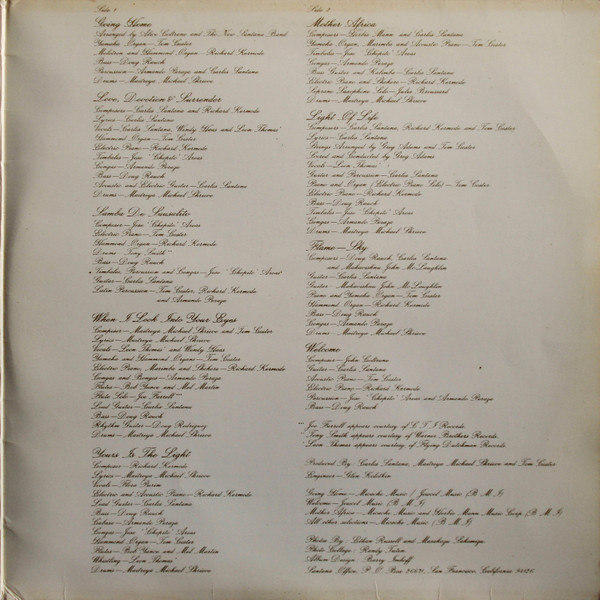 Side 1
Going Home
Arranged by Alice Coltrane and The New Santana Band
Yamaha Organ—Tom Coster
Mellotron and Hammond Organ—Richard Kermode
Bass—Doug Rauch
Percussion—Armando Peraza and Carlos Santana
Drums—Maitreya Michael Shrieve
Love, Devotion & Surrender
Composers—Carlos Santana and Richard Kermode
Lyrics—Carlos Santana
Vocals—Carlos Santana, Wendy Haas and Leon Thomas
Hammond Organ—Tom Coster
Electric Piano—Richard Kermode
Timbales—Jose 'Chepito' Areas
Congas—Armando Peraza
Bass—Doug Rauch
Acoustic and Electric Guitar—Carlos Santana
Drums—Maitreya Michael Shrieve
Samba De Sausalito
Composer—Jose 'Chepito' Areas
Electric Piano—Tom Coster
Hammond Organ—Richard Kermode
Drums—Tony Smith**
Bass—Doug Rauch
Timbales, Percussion and Congas—Jose 'Chepito' Areas
Guitar—Carlos Santana
Latin Percussion—Tom Coster, Richard Kermode
and Armando Peraza
When I Look Into Your Eyes
Composer—Maitreya Michael Shrieve and Tom Coster
Lyrics—Maitreya Michael Shrieve
Vocals—Leon Thomas and Wendy Haas
Yamaha and Hammond Organs—Tom Coster
Electric Piano, Marimba and Shekere—Richard Kermode
Congas and Bongos—Armando Peraza
Flutes—Bob Yance and Mel Martin
Flute Solo—Joe Farrell***
Lead Guitar—Carlos Santana
Bass—Doug Rauch
Rhythm Guitar—Doug Rodrigues
Drums—Maitreya Michael Shrieve
Yours Is The Light
Composer—Richard Kermode
Lyrics—Maitreya Michael Shrieve
Vocals—Flora Purim
Electric and Acoustic Piano—Richard Kermode
Lead Guitar—Carlos Santana
Bass—Doug Rauch
Cabasa—Armando Peraza
Congas—Jose 'Chepito' Areas
Hammond Organ—Tom Coster
Flutes—Bob Yance and Mel Martin
Whistling—Leon Thomas
Drums—Maitreya Michael Shrieve
Side 2
Mother Africa
Composers—Herbie Mann and Carlos Santana
Yamaha Organ, Marimba and Acoustic Piano—Tom Coster
Timbales—Jose 'Chepito' Areas
Congas—Armando Peraza
Bass Guitar and Kalimba—Carlos Santana
Electric Piano and Shekere—Richard Kermode
Soprano Saxophone Solo—Jules Broussard
Drums—Maitreya Michael Shrieve
Light Of Life
Composers—Carlos Santana, Richard Kermode and Tom Coster
Lyrics—Carlos Santana
Strings Arranged by Greg Adams and Tom Coster
Scored and Conducted by Greg Adams
Vocals—Leon Thomas
Guitar and Percussion—Carlos Santana
Piano and Organ (Electric Piano Solo)—Tom Coster
Electric Piano—Richard Kermode
Bass—Doug Rauch
Timbales—Jose 'Chepito' Areas
Congas—Armando Peraza
Drums—Maitreya Michael Shrieve
Flame—Sky
Composers—Doug Rauch, Carlos Santana
and Mahavishnu John McLaughlin
Guitar—Carlos Santana
Guitar—Mahavishnu John McLaughlin
Piano and Yamaha Organ—Tom Coster
Hammond Organ—Richard Kermode
Bass—Doug Rauch
Congas—Armando Peraza
Drums—Maitreya Michael Shrieve
Welcome
Composer—John Coltrane
Guitar—Carlos Santana
Acoustic Piano—Tom Coster
Electric Piano—Richard Kermode
Percussion—Jose 'Chepito' Areas and Armando Peraza
Bass—Doug Rauch
***Joe Farrell appears courtesy of C T I Records.
**Tony Smith appears courtesy of Warner Brothers Records.
*Leon Thomas appears courtesy of Flying Dutchman Records.
Produced By: Carlos Santana, Maitreya Michael Shrieve and Tom Coster
Engineer—Glen Kolotkin
Going Home—Michelle Music / Jowcol Music (B.M.I.)
Welcome—Jowcol Music (B.M.I.)
Mother Africa—Music and Herbie Mann Music Corp. (B.M.I.)
All other selections—Music (B.M.I.)
Photo By: Ethan Russell and Masahiro Sakamiya
Photo Collage: Randy Tuten
Album Design: Barry Imhoff
Santana Office, P. O. Box San Francisco, California